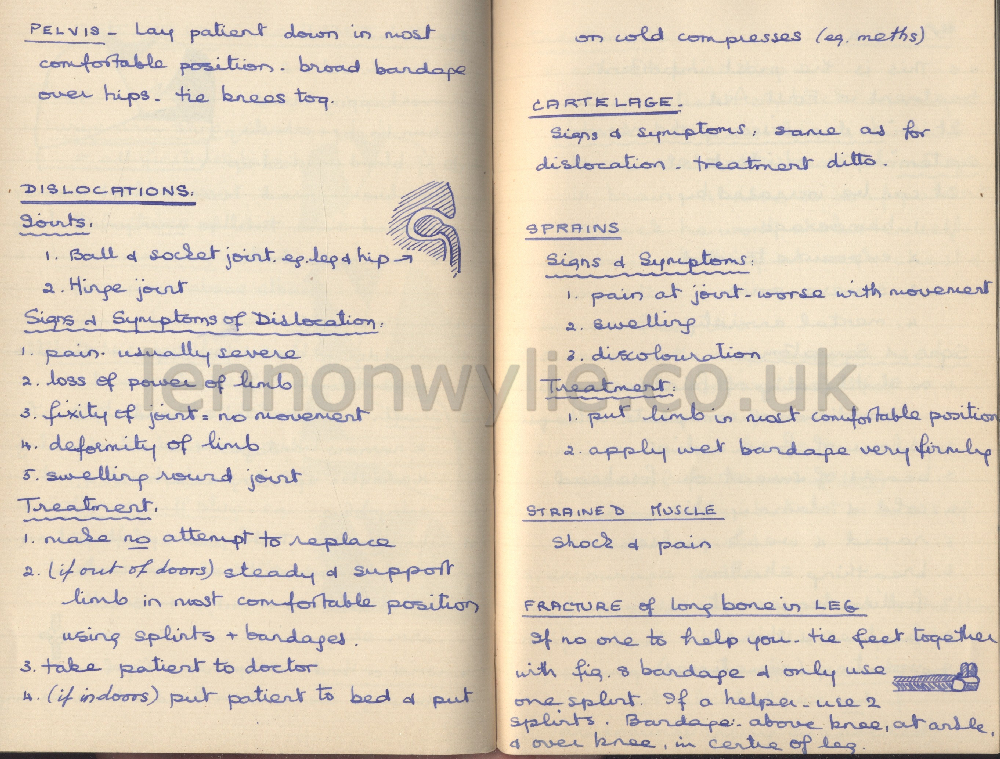 PELVIS - Lay patient down in most
comfortable position. broad bandage
over hips. tie knees tog.
DISLOCATIONS.
Joints.
1. Ball & socket joint. eg. leg & hip →
2. Hinge joint
Signs & Symptoms of Dislocation.
1. pain. usually severe
2. loss of power of limb
3. fixity of joint = no movement
4. deformity of limb
5. swelling round joint
Treatment.
1. make no attempt to replace
2. (if out of doors) steady & support
limb in most comfortable position
using splints + bandages.
3. take patient to doctor
4. (if indoors) put patient to bed & put
on cold compresses (eg. meths)
CARTELAGE.
Signs & symptoms. same as for
dislocation. treatment ditto.
SPRAINS
Signs & Symptoms.
1. pain at joint - worse with movement
2. swelling
3. discolouration
Treatment.
1. put limb in most comfortable position
2. apply wet bandage very firmly
STRAINED MUSCLE
Shock & pain
FRACTURE of long bone in LEG
If no one to help you - tie feet together
with fig. 8 bandage & only use
one splint. If a helper - use 2
splints. Bandage - above knee, at ankle,
& over knee, in centre of leg.
lennonwylie.co.uk